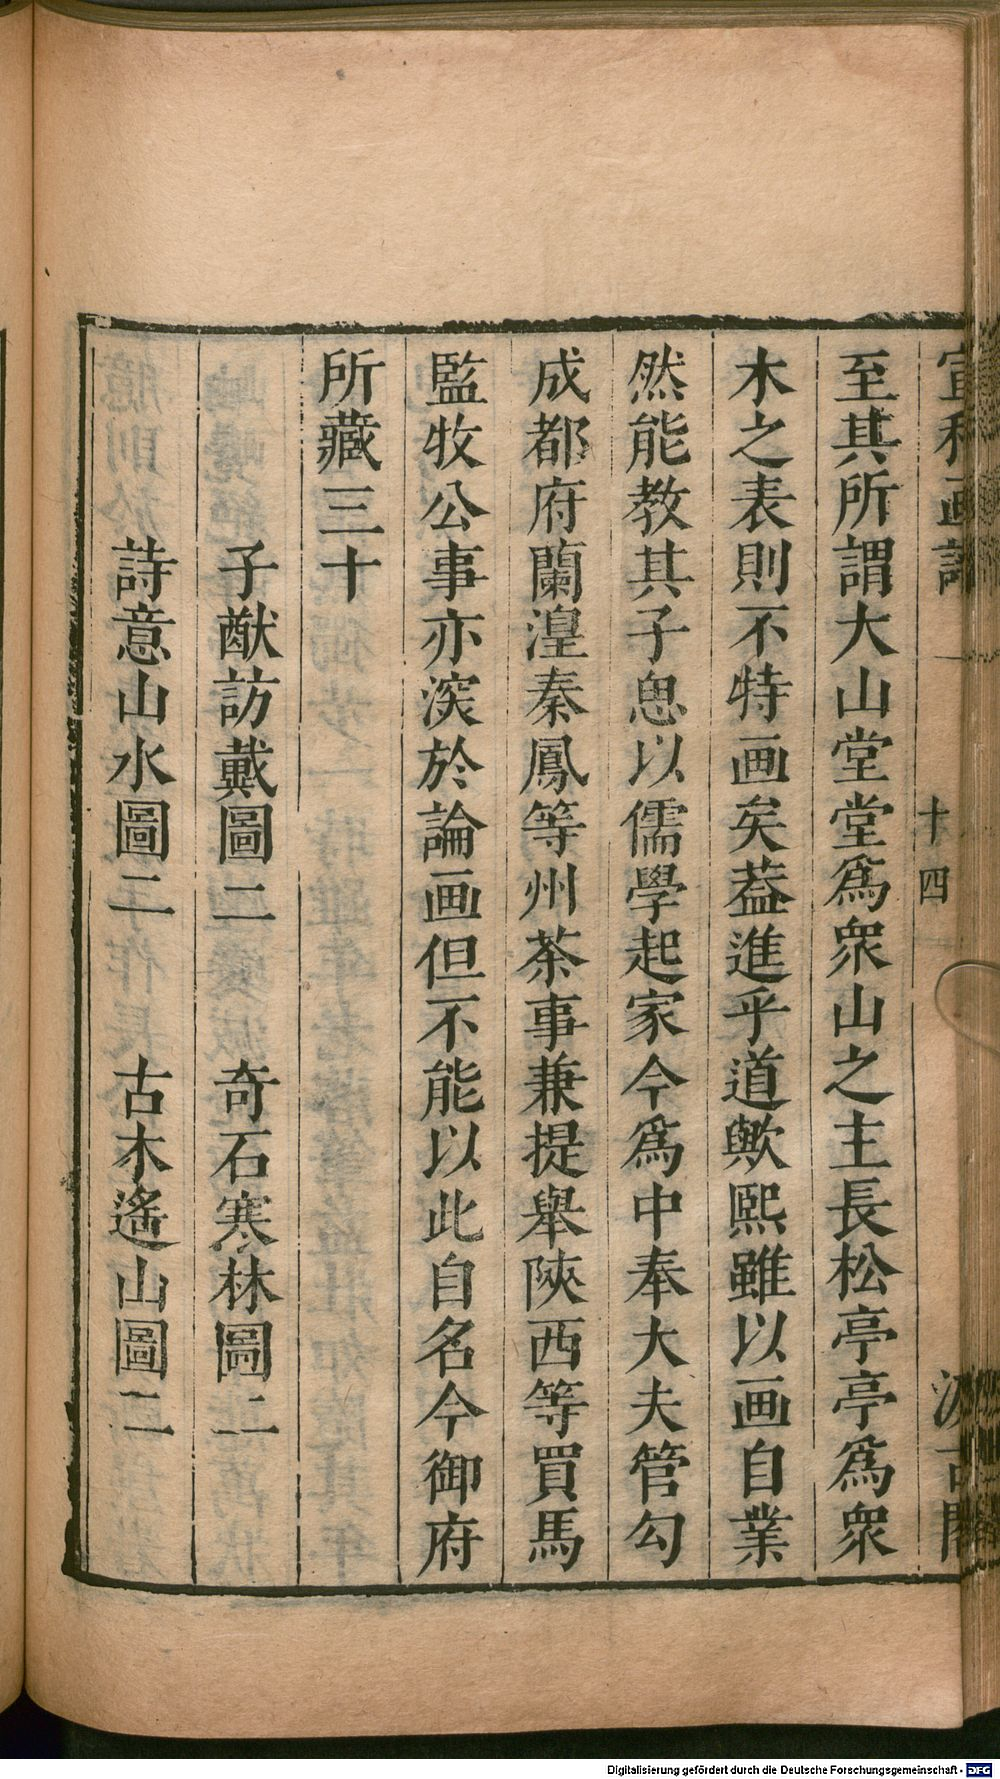 宣和画譜　十四　汲古閣
至其所謂大山堂堂爲衆山之主長松亭亭爲衆
木之表則不特画矣葢進乎道歟熙雖以画自業
然能教其子思以儒學起家今爲中奉大夫管勾
成都府蘭湟秦鳳等州茶事兼提舉陝西等買馬
監牧公事亦深於論画但不能以此自名今御府
所藏三十
子猷訪戴圖二　奇石寒林圖二
詩意山水圖二　古木遙山圖二
Digitalisierung gefördert durch die Deutsche Forschungsgemeinschaft - DFG